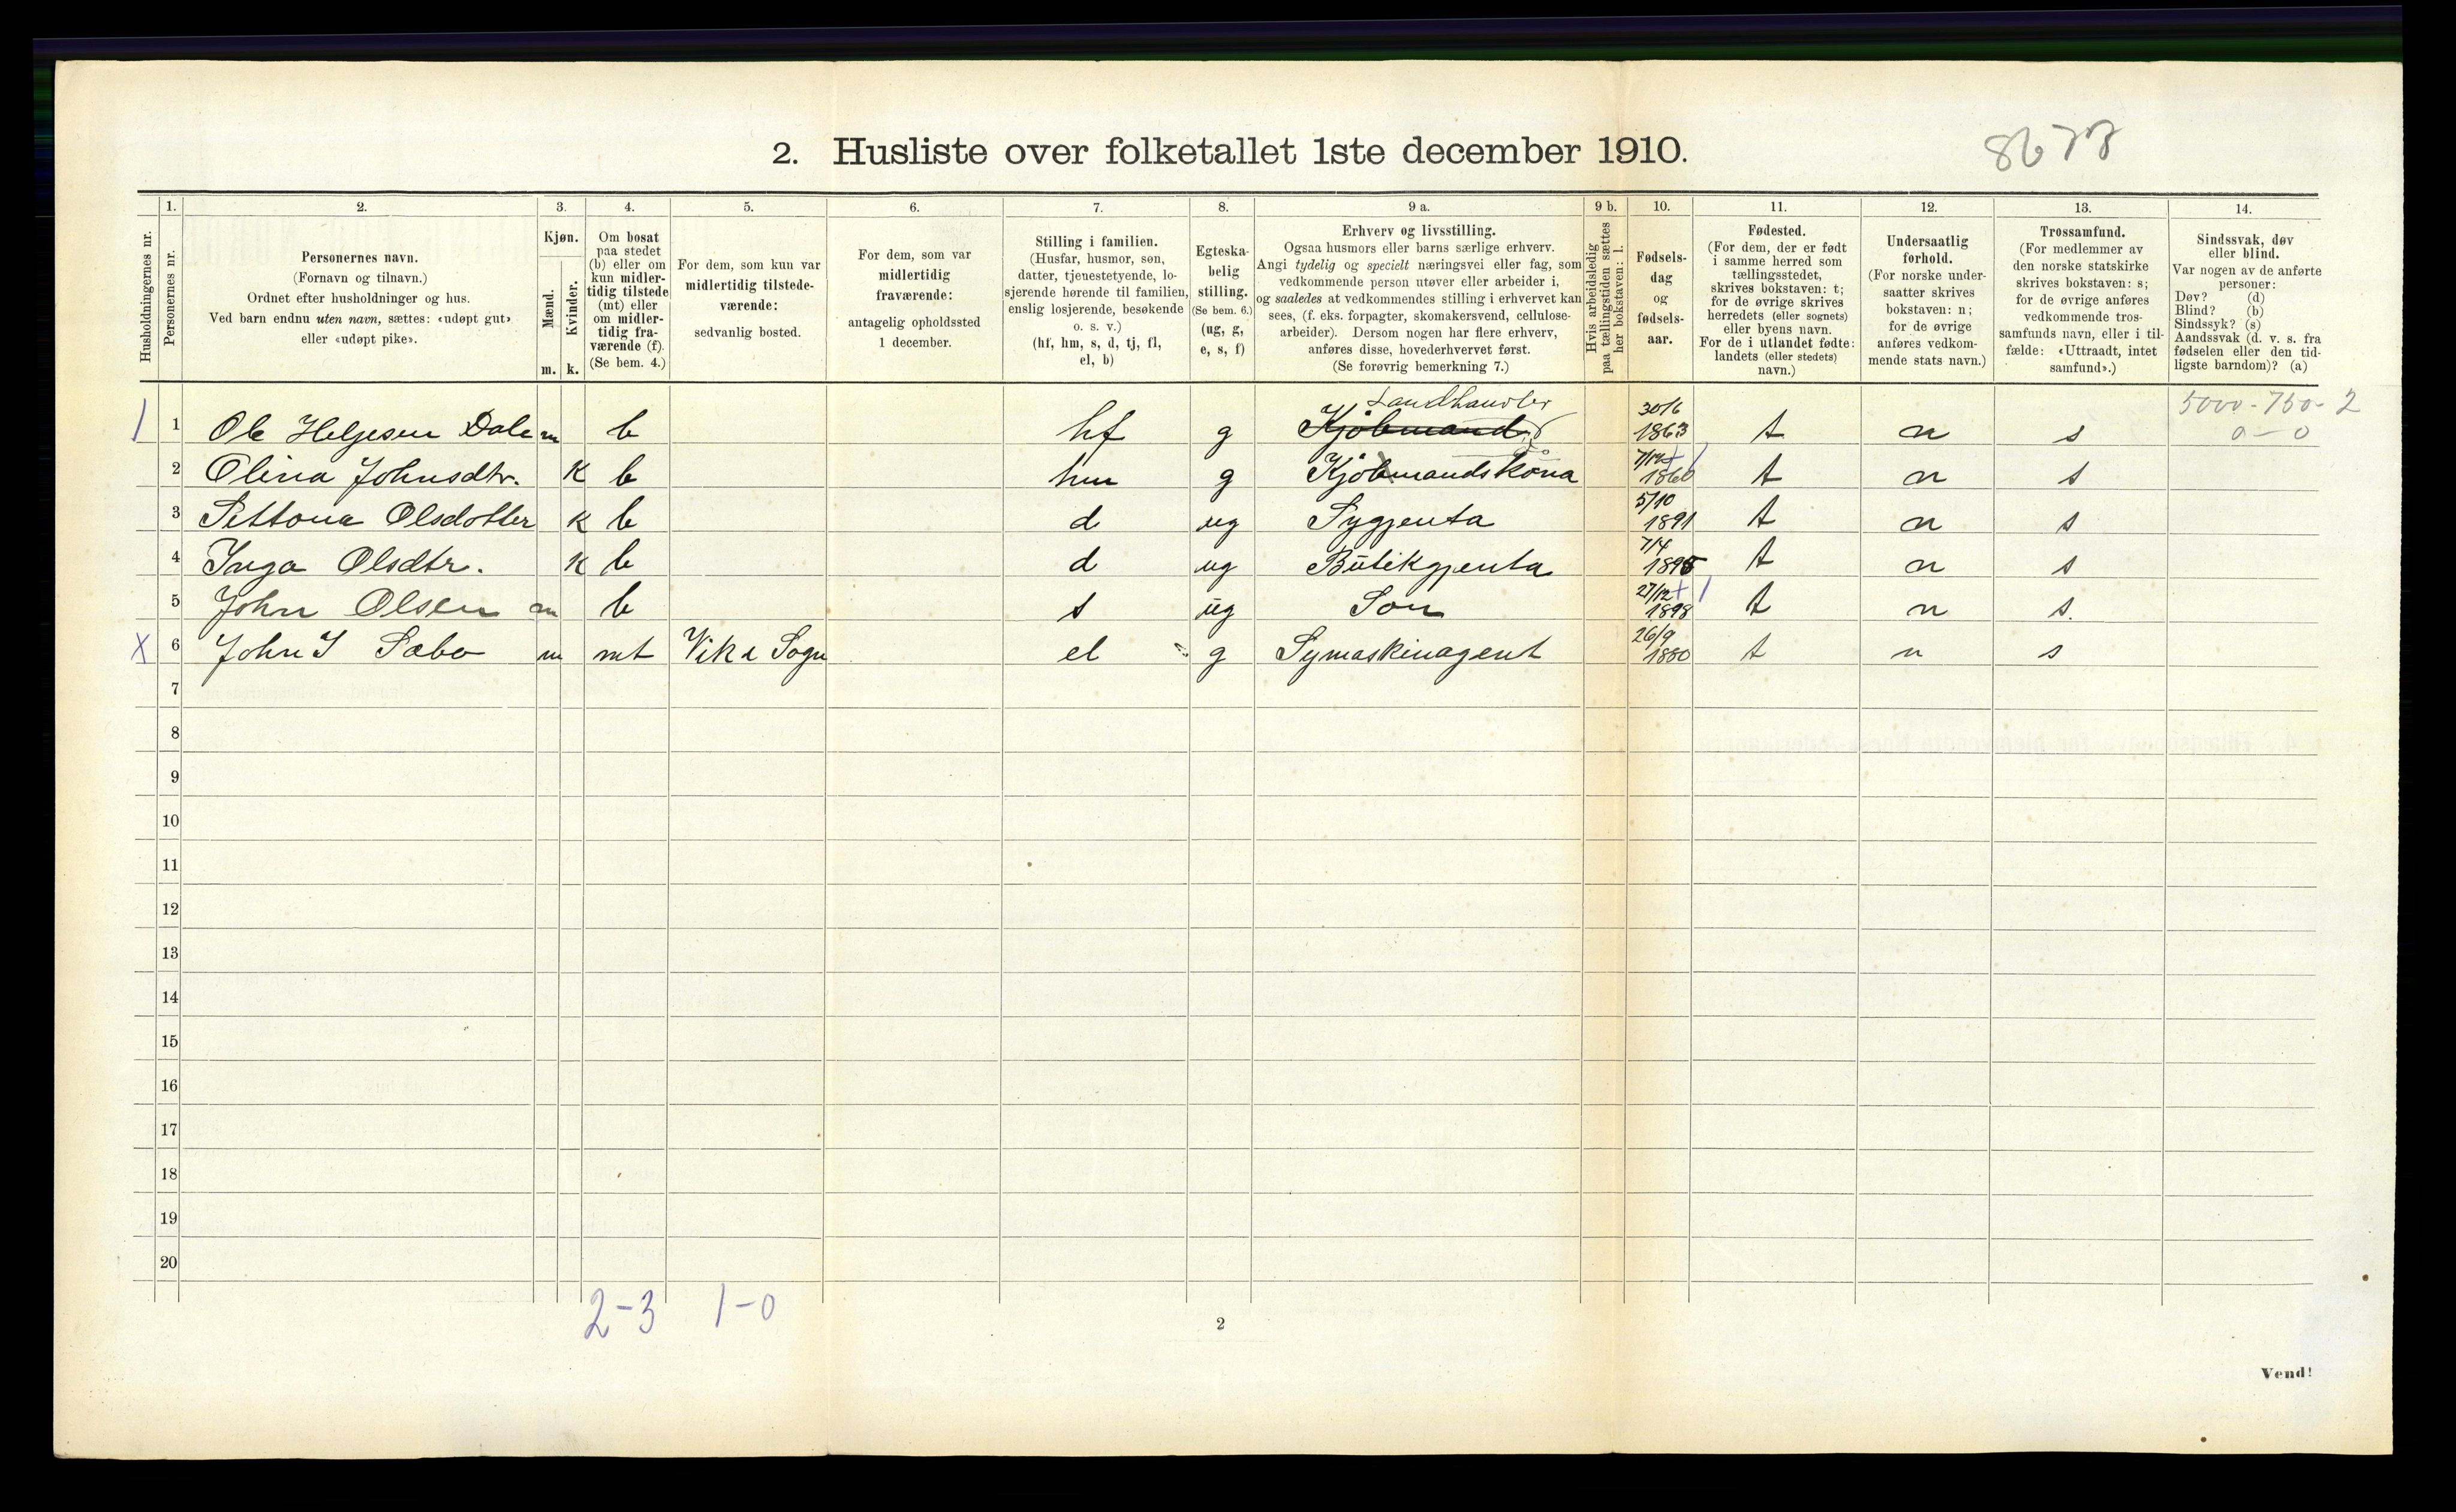 8678
2. Husliste over folketallet 1ste december 1910.
Husholdningernes nr.
1.
Personernes nr.
2.
Personernes navn.
(Fornavn og tilnavn.)
Ordnet efter husholdninger og hus.
Ved barn endnu uten navn, sættes: «udøpt gut»
eller «udøpt pike».
3.
Kjøn.
Mænd.
Kvinder.
m. k.
4.
Om bosat
paa stedet
(b) eller om
kun midler-
tidig tilstede
(mt) eller
om midler-
tidig fra-
værende (f).
(Se bem. 4.)
5.
For dem, som kun var
midlertidig tilstede-
værende:
sedvanlig bosted.
6.
For dem, som var
midlertidig
fraværende:
antagelig opholdssted
1 december.
7.
Stilling i familien.
(Husfar, husmor, søn,
datter, tjenestetyende, lo-
sjerende hørende til familien,
enslig losjerende, besøkende
o. s. v.)
(hf, hm, s, d, tj, fl,
el, b)
8.
Egteska-
belig
stilling.
(Se bem. 6.)
(ug, g,
e, s, f)
9 a.
Erhverv og livsstilling.
Ogsaa husmors eller barns særlige erhverv.
Angi tydelig og specielt næringsvei eller fag, som
vedkommende person utøver eller arbeider i,
og saaledes at vedkommendes stilling i erhvervet kan
sees, (f. eks. forpagter, skomakersvend, cellulose-
arbeider). Dersom nogen har flere erhverv,
anføres disse, hovederhvervet først.
(Se forøvrig bemerkning 7.)
9 b.
Hvis arbeidsledig
paa tællingstiden sættes
her bokstaven: l.
10.
Fødsels-
dag
og
fødsels-
aar.
11.
Fødested.
(For dem, der er født
i samme herred som
tællingsstedet,
skrives bokstaven: t;
for de øvrige skrives
herredets (eller sognets)
eller byens navn.
For de i utlandet fødte:
landets (eller stedets)
navn.)
12.
Undersaatlig
forhold.
(For norske under-
saatter skrives
bokstaven: n;
for de øvrige
anføres vedkom-
mende stats navn.)
13.
Trossamfund.
(For medlemmer av
den norske statskirke
skrives bokstaven: s;
for de øvrige anføres
vedkommende tros-
samfunds navn, eller i til-
fælde: «Uttraadt, intet
samfund».)
14.
Sindssvak, døv
eller blind.
Var nogen av de anførte
personer:
Døv? (d)
Blind? (b)
Sindssyk? (s)
Aandssvak (d. v. s. fra
fødselen eller den tid-
ligste barndom)? (a)
Landhandler 5000-750-2
1 1 Ole Helgesen Dale m b hf g Kjøbmand 30/6 1863 t n s 0-0
2 Olina Johnsdtr. k b hm g Kjøbmandskona 1860 t n s
3 Settona Olsdotter k b d ug Sygjenta 5/10 1891 t n s
4 Inga Olsdtr. k b d ug Butikgjenta 7/4 1895 t n s
5 John Olsen m b s ug Son 27/12 1898 t n s.
x 6 John I Sæbo m mt Vik i Sogn el g Symaskinagent 26/9 1880 t n s
7
8
9
10
11
12
13
14
15
16
17
18
19
20
2-3 1-0
2
Vend!